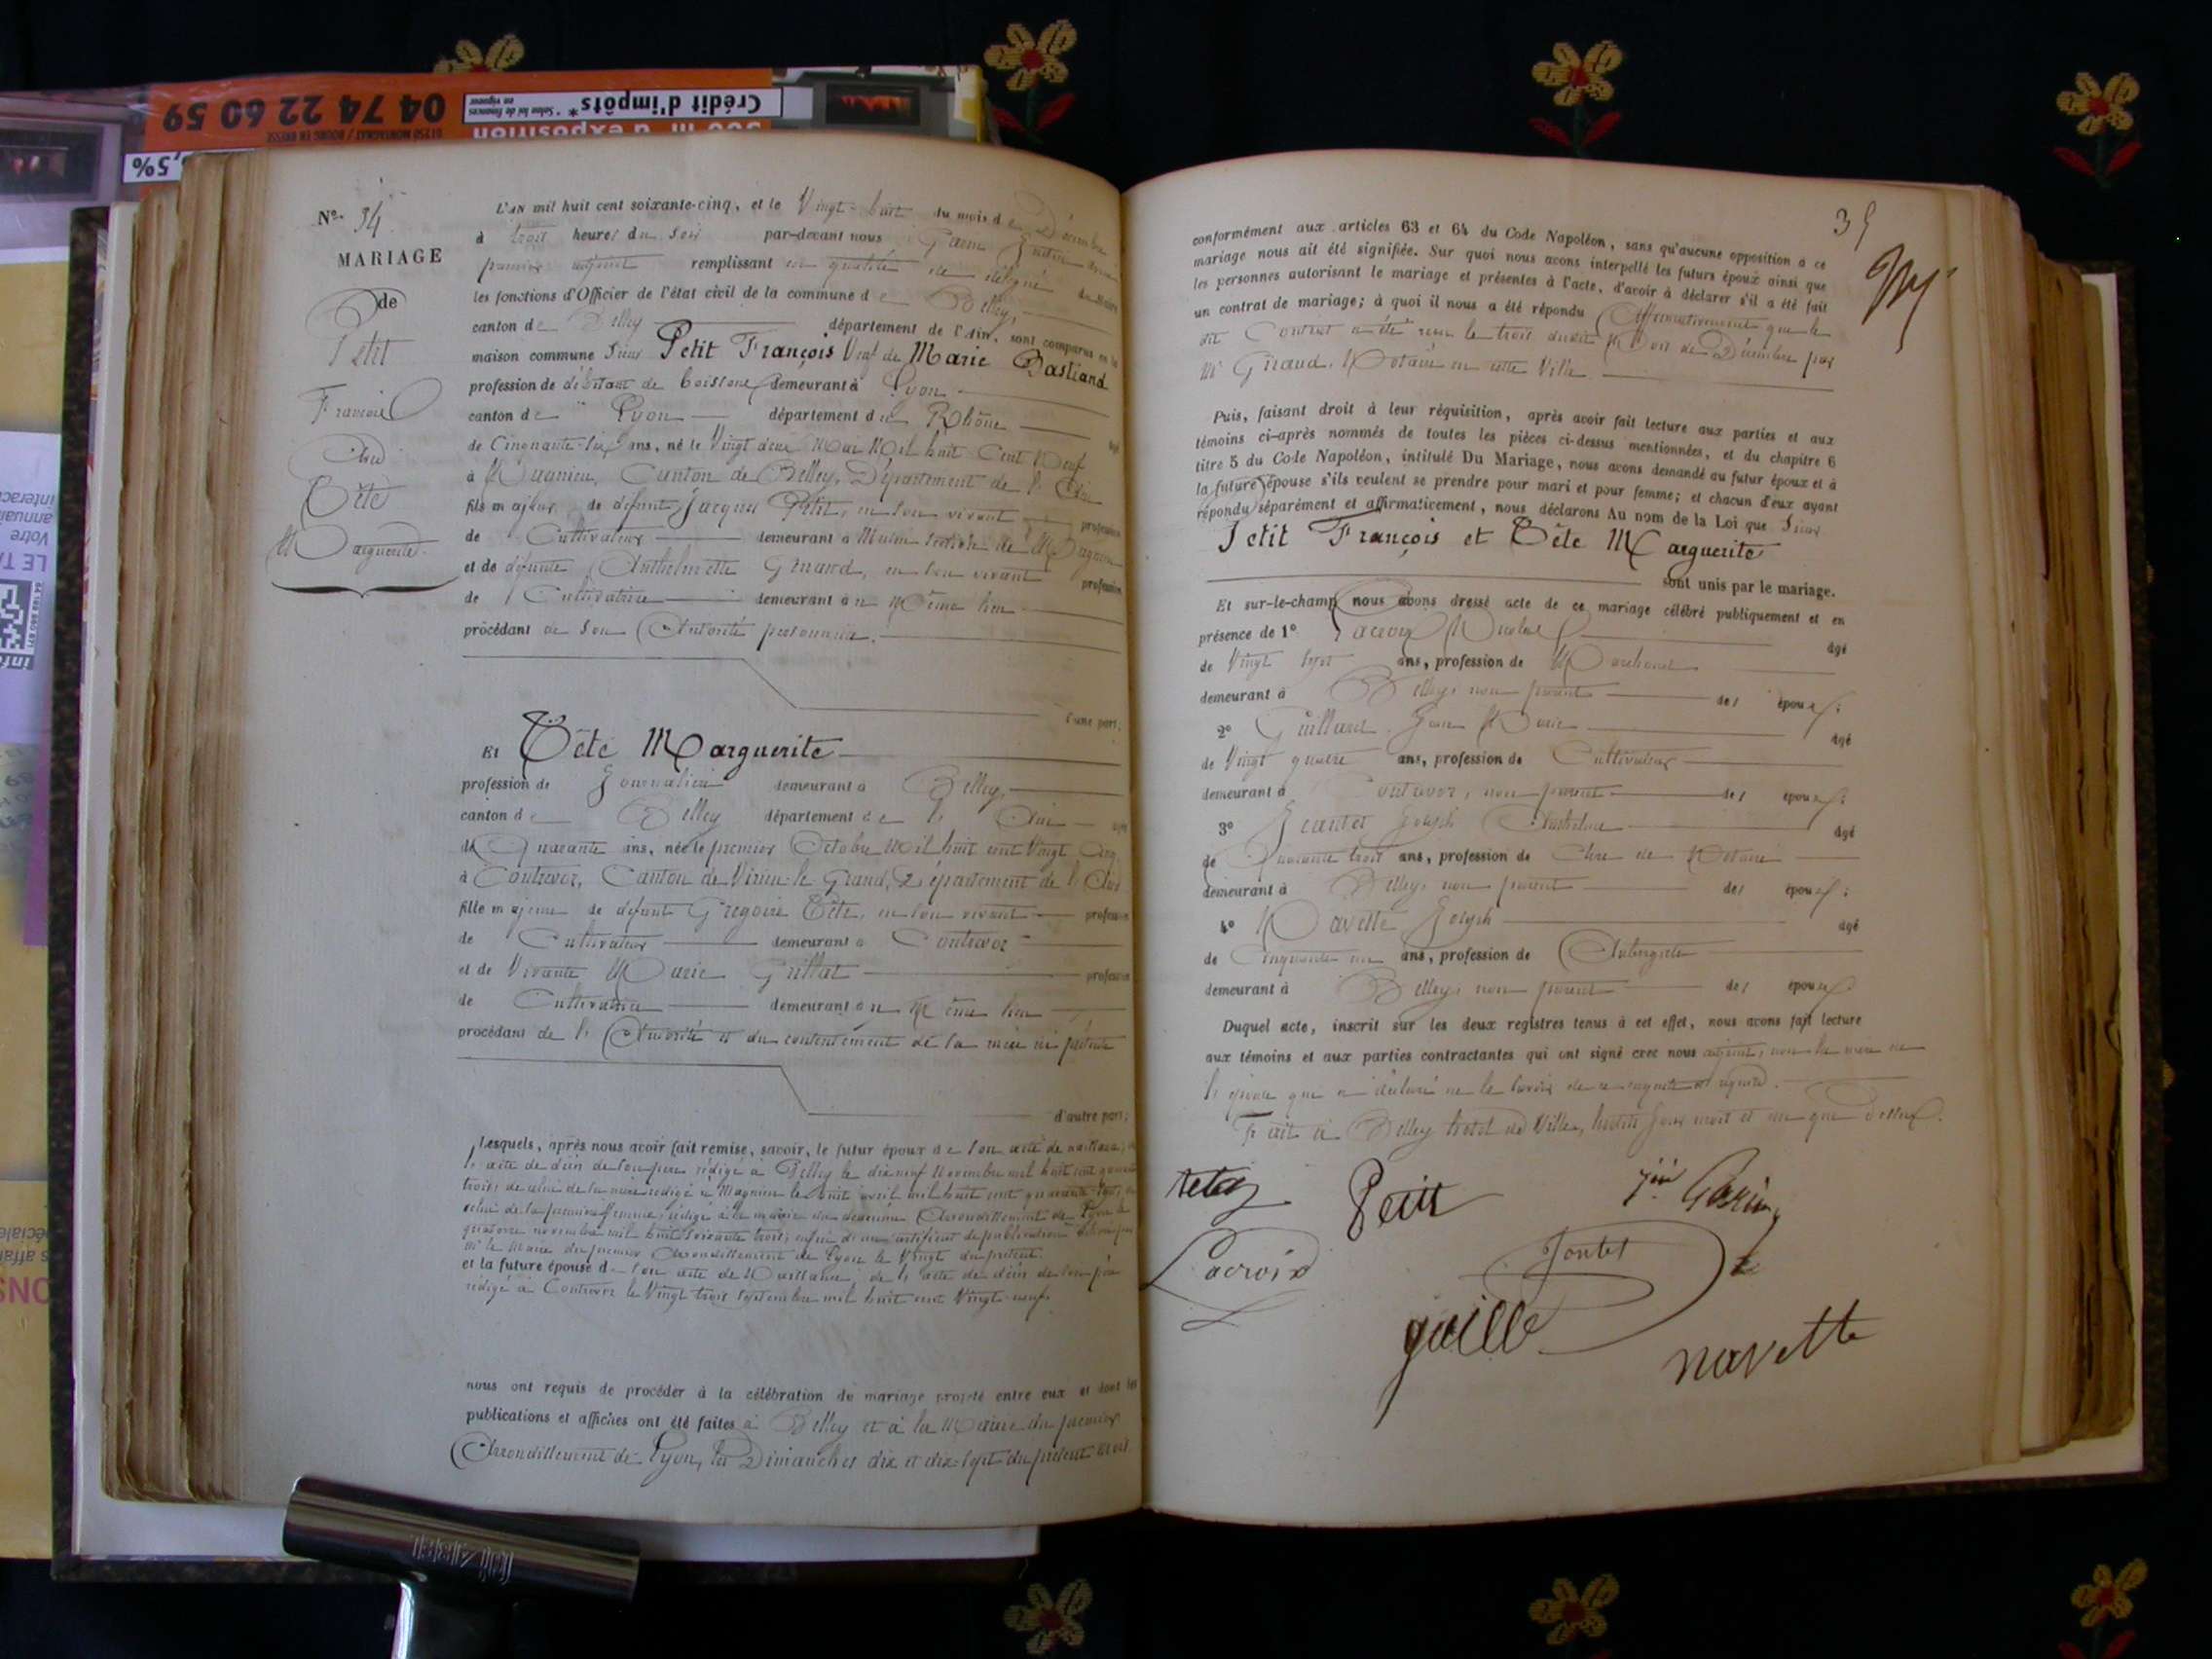 04 74 22 60 59
01250 MONTAGNAT / BOURG EN BRESSE
d'exposition
Crédit d'impôts*
* Selon loi de finances
en vigueur
5,5%
N° 34.
MARIAGE
de
Petit
François
Avec
Tête
Marguerite
L'AN mil huit cent soixante-cinq, et le Vingt-huit du mois de Décembre
à trois heures du soir par-devant nous
premier adjoint remplissant en qualité de délégué du Maire
les fonctions d'Officier de l'état civil de la commune de Belley,
canton de Belley département de l'Ain, sont comparus en la
maison commune Sieur Petit François Veuf de Marie Bastiand
profession de débitant de boissons demeurant à Lyon
canton de Lyon département du Rhône âgé
de Cinquante-six ans, né le Vingt deux Mai Mil huit Cent Neuf
à Magnieu, Canton de Belley, Département de l'Ain
fils majeur de défunt Jacques Petit, en son vivant profession
de Cultivateur demeurant à
et de défunte Anthelmette Girard, en son vivant profession
de Cultivatrice demeurant au Même lieu
procédant de son Autorité personnelle.
d'une part;
Et Tête Marguerite
profession de Journalière demeurant à Belley,
canton de Belley département de l'Ain âgée
de Quarante ans, née le premier Octobre Mil huit cent Vingt Cinq
à Contrevoz, Canton de Virieu-le-Grand, Département de l'Ain
fille majeure de défunt Grégoire Tête, en son vivant profession
de Cultivateur demeurant à Contrevoz
et de Vivante Marie Guillat profession
de Cultivatrice demeurant au Même lieu
procédant de l'Autorité et du contentement de sa mère ici présente
d'autre part;
Lesquels, après nous avoir fait remise, savoir, le futur époux de son acte de naissance, de
l'acte de décès de son père rédigé à Belley le dix neuf Novembre mil huit cent quarante
trois; de celui de sa mère rédigé à Magnieu le huit avril mil huit cent quarante sept, de
celui de sa première femme, rédigé à la mairie du deuxième Arrondissement de Lyon le
quatorze novembre mil huit soixante trois; enfin d'un certificat de publication délivré par
Mr le Maire du premier Arrondissement de Lyon le Vingt du présent.
et la future épouse de son acte de Naissance; de l'acte de décès de son père
rédigé à Contrevoz le Vingt trois Septembre mil huit cent Vingt-neuf.
nous ont requis de procéder à la célébration du mariage projeté entre eux et dont les
publications et affiches ont été faites à Belley et à la Mairie du premier
Arrondissement de Lyon, les Dimanches dix et dix-sept du présent mois
35
conformément aux articles 63 et 64 du Code Napoléon, sans qu'aucune opposition à ce
mariage nous ait été signifiée. Sur quoi nous avons interpellé les futurs époux ainsi que
les personnes autorisant le mariage et présentes à l'acte, d'avoir à déclarer s'il a été fait
un contrat de mariage; à quoi il nous a été répondu Affirmativement que le
dit Contrat a été reçu le trois dudit Mois de Décembre par
Me Giraud, Notaire en cette Ville
Puis, faisant droit à leur réquisition, après avoir fait lecture aux parties et aux
témoins ci-après nommés de toutes les pièces ci-dessus mentionnées, et du chapitre 6
titre 5 du Code Napoléon, intitulé Du Mariage, nous avons demandé au futur époux et à
la future épouse s'ils veulent se prendre pour mari et pour femme; et chacun d'eux ayant
répondu séparément et affirmativement, nous déclarons Au nom de la Loi que Sieur
Petit François et Tête Marguerite
sont unis par le mariage.
Et sur-le-champ nous avons dressé acte de ce mariage célébré publiquement et en
présence de 1° Lacroix Nicolas âgé
de Vingt sept ans, profession de Marchand
demeurant à Belley, non parent des époux;
2° Jean Marie âgé
de Vingt quatre ans, profession de Cultivateur
demeurant à Contrevoz, non parent des époux;
3° Joseph Anthelme âgé
de Quarante trois ans, profession de Clerc de Notaire
demeurant à Belley, non parent des époux;
4° Navette Joseph âgé
de Cinquante un ans, profession de Aubergiste
demeurant à Belley, non parent des époux
Duquel acte, inscrit sur les deux registres tenus à cet effet, nous avons fait lecture
aux témoins et aux parties contractantes qui ont signé avec nous adjoint, non la mère de
l'épouse qui a déclaré ne le savoir de ce enquise et requise.
Fait à Belley hotel de Ville, lesdits jour mois et an que dessus.
Petit
Lacroix
navette